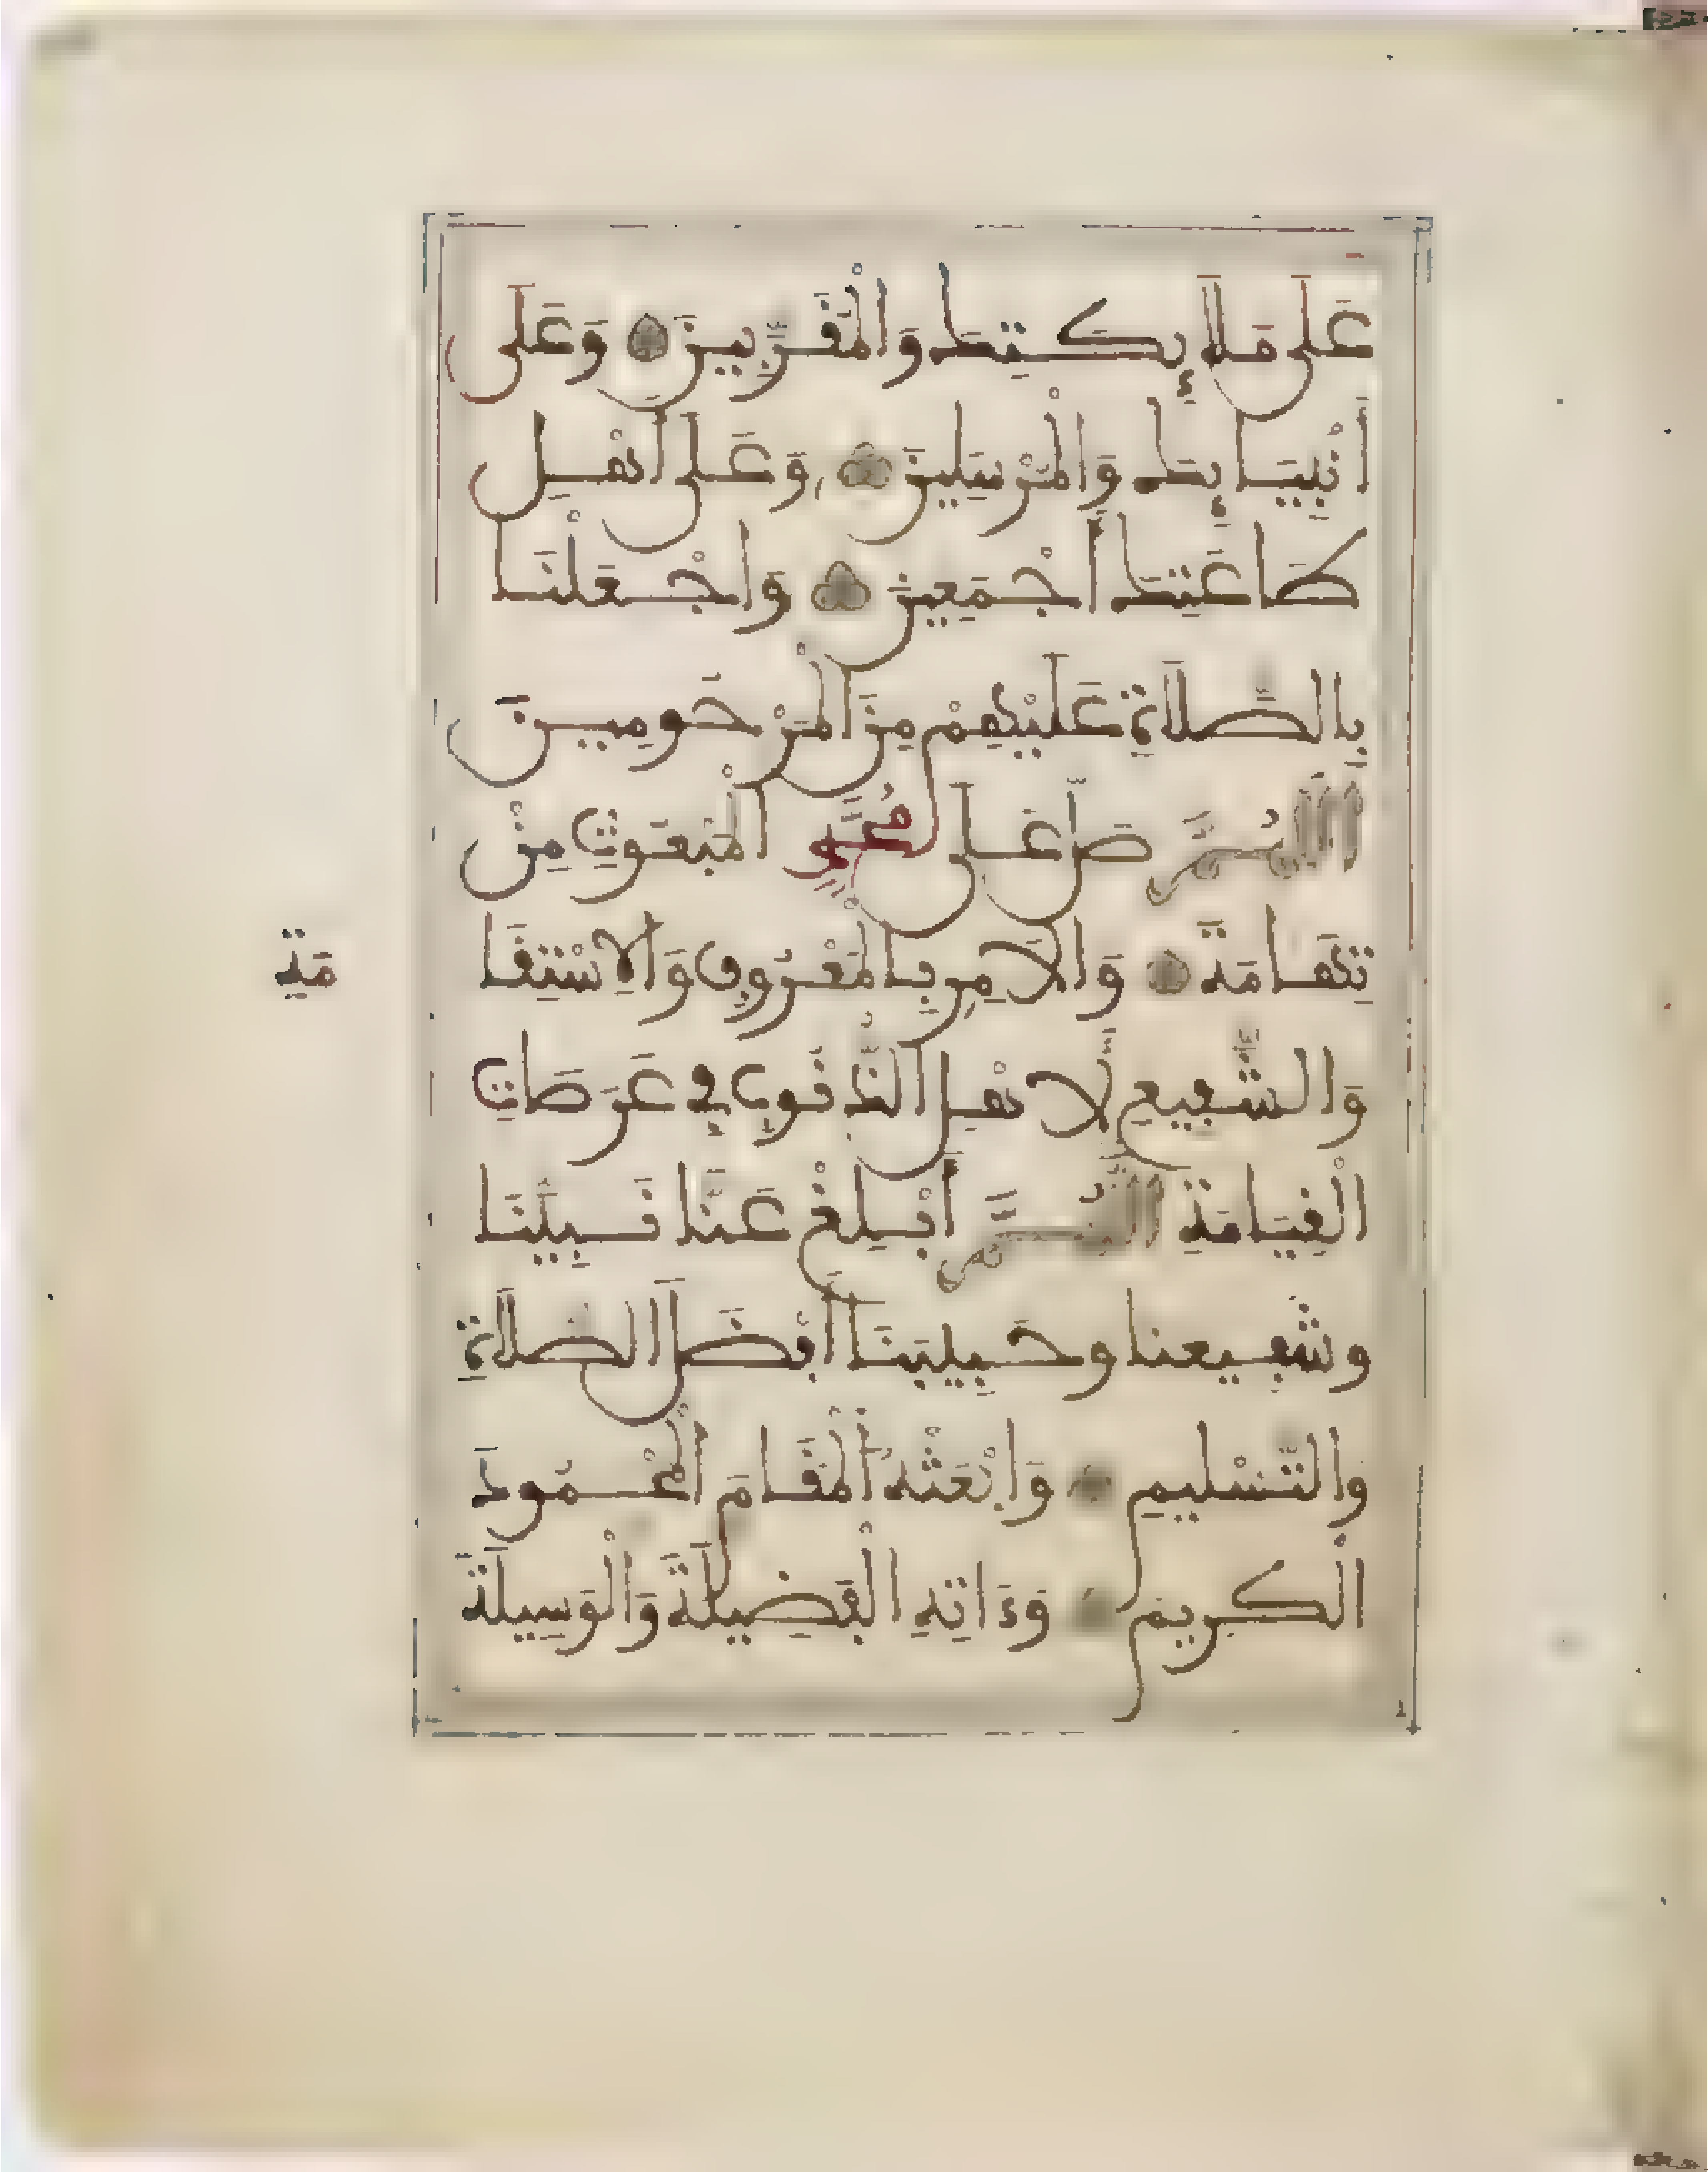 عَلَى مَلَآئِكَتِكَ وَالْمُقَرَّبِينَ وَعَلَى
أَنْبِيَائِكَ وَالْمُرْسَلِينَ وَعَلَى أَهْلِ
طَاعَتِكَ أَجْمَعِينَ وَاجْعَلْنَا
بِالصَّلَاةِ عَلَيْهِمْ مِنَ الْمَرْحُومِينَ
اللَّهُمَّ صَلِّ عَلَى مُحَمَّدٍ الْمَبْعُوثِ مِنْ
تِهَامَةَ وَالْآمِرِ بِالْمَعْرُوفِ وَالِاسْتِقَا
مَةِ
وَالشَّفِيعِ لِأَهْلِ الذُّنُوبِ فِي عَرَصَاتِ
الْقِيَامَةِ اللَّهُمَّ أَبْلِغْ عَنَّا نَبِيَّنَا
وشَفِيعنا وحَبِيبَنَا أَفْضَلَ الصَّلَاةِ
والتَّسْلِيمِ وَابْعَثْهُ الْمَقَامَ الْمَحْمُودَ
الْكرِيمَ وَءَاتِهِ الْفَضِيلَةَ وَالْوَسِيلَةَ